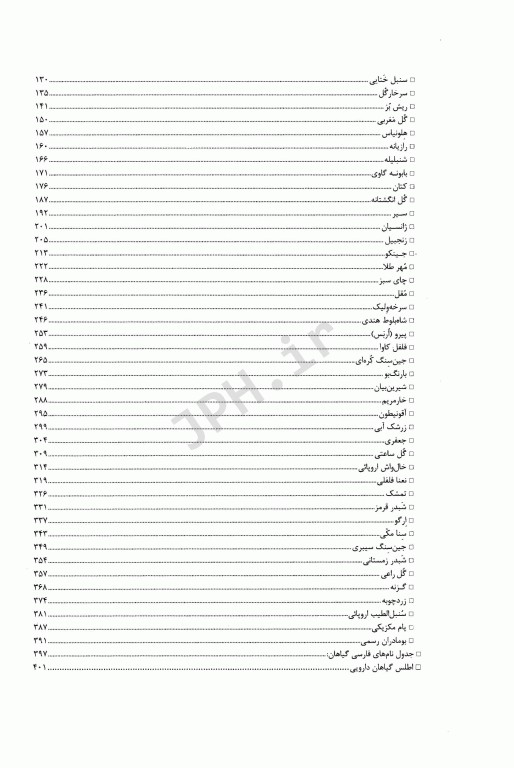 □ سنبل خَتایی ۱۳۰
□ سرخارگُل ۱۳۵
□ ریش بُز ۱۴۱
□ گُل مَغربی ۱۵۰
□ هِلونیاس ۱۵۷
□ رازیانه ۱۶۰
□ شنبلیله ۱۶۶
□ بابونه گاوی ۱۷۱
□ کتان ۱۷۶
□ گُل انگشتانه ۱۸۷
□ سیر ۱۹۲
□ ژانسیان ۲۰۱
□ زنجبیل ۲۰۵
□ جینکو ۲۱۳
□ مُهر طلا ۲۲۲
□ چای سبز ۲۲۸
□ مُقل ۲۳۶
□ سرخه‌ولیک ۲۴۱
□ شاه‌بلوط هندی ۲۴۶
□ پیرو (اُرس) ۲۵۳
□ فلفل کاوا ۲۵۹
□ جین‌سِنگ کُره‌ای ۲۶۵
□ بارنگ‌بو ۲۷۳
□ شیرین‌بیان ۲۷۹
□ خارمریم ۲۸۸
□ آقونیطون ۲۹۵
□ زرشک آبی ۲۹۹
□ جعفری ۳۰۴
□ گُل ساعتی ۳۰۹
□ خال‌واش اروپائی ۳۱۴
□ نعنا فلفلی ۳۱۹
□ تمشک ۳۲۶
□ شَبدر قرمز ۳۳۱
□ اِرگو ۳۳۷
□ سِنا مکّی ۳۴۳
□ جین‌سِنگ سیبری ۳۴۹
□ شَبدر زمستانی ۳۵۴
□ گُل راعی ۳۵۷
□ گزنه ۳۶۸
□ زردچوبه ۳۷۴
□ سُنبل‌الطیب اروپائی ۳۸۱
□ یام مکزیکی ۳۸۷
□ بومادران رسمی ۳۹۱
□ جدول نام‌های فارسی گیاهان: ۳۹۷
□ اطلس گیاهان دارویی ۴۰۱
JPH.ir